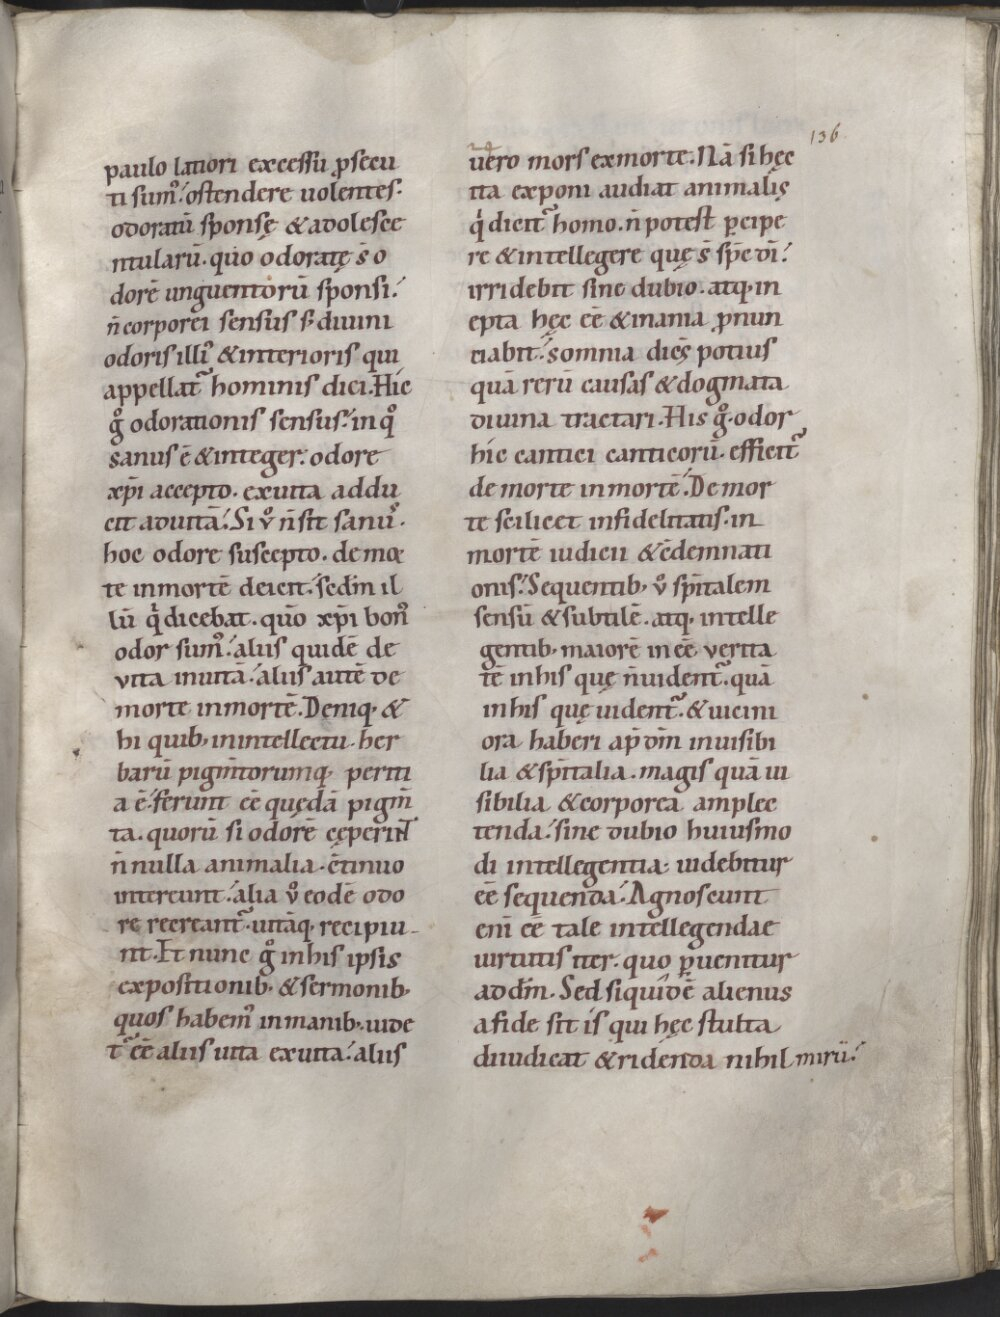 136
paulo latiori excessu ꝓsecu
ti sum᷒. ostendere uolentes.
odoratū sponsę & adolesce
ntularū. quo odoratę s̄ o
dorē unguentorū sponsi.
n̄ corporei sensus s; diuini
odoris illi᷒ & interioris qui
appellat᷑ hominis dici. Hic
gͦ odorationis sensus. in qͦ
sanus ē & integer. odore
xp̄i accepto. ex uita addu
cit ad uitā. Si v̊ n̄ sit sanu᷒.
hoc odore suscepto. de mor
te in mortē deicit. scdm̄ il
lū qͥ dicebat. quo xp̄i bon᷒
odor sum᷒. aliis quidē de
vita in uitā. aliis autē de
morte in mortē. Deniq; &
hi quib; in intellectu her
barū pigm̄torumq; periti
a ē. ferunt eē quędā pigm̄
ta. quorū si odorē cęperint
n̄ nulla animalia. c̄tinuo
intereunt. alia v̊ eodē odo
re recreant᷑. uitāq; recipiu-
nt. Et nunc gͦ in his ipsis
expositionib; & sermonib;
quos habem᷒ in manib; uide
t᷑ eē aliis uita ex uita. aliis
uero mors ex morte. Nā si hęc
ita exponi audiat animalis
qͥ dicit᷑ homo. n̄ potest ꝑcipe
re & intellegere quę s̄ sp̄c dī.
irridebit sine dubio. atq; in
epta hęc eē & inania ꝓnun
ciabit. somnia dicēs potius
quā rerū causas & dogmata
diuina tractari. His gͦ. odor
hic cantici canticorū. efficit᷑
de morte in mortē. De mor
te scilicet infidelitatis. in
mortē iudicii & c̄demnati
onis. Sequentib; v̊ sp̄italem
sensū & subtilē. atq; intelle
gentib; maiorē in eē verita
tē in his quę n̄ uident᷑. quā
in his quę uident᷑. & uicini
ora haberi ap̄ dm̄ inuisibi
lia & sp̄italia. magis quā ui
sibilia & corporea amplec
tenda. sine dubio huiusmo
di intellegentia. uidebitur
eē sequenda. Agnoscunt
enī eē tale intellegendae
uirtutis iter. quo ꝑuenitur
ad dm̄. Sed siquidē alienus
a fide sit is qui hęc stulta
diiudicat & ridenda nihil mirū.